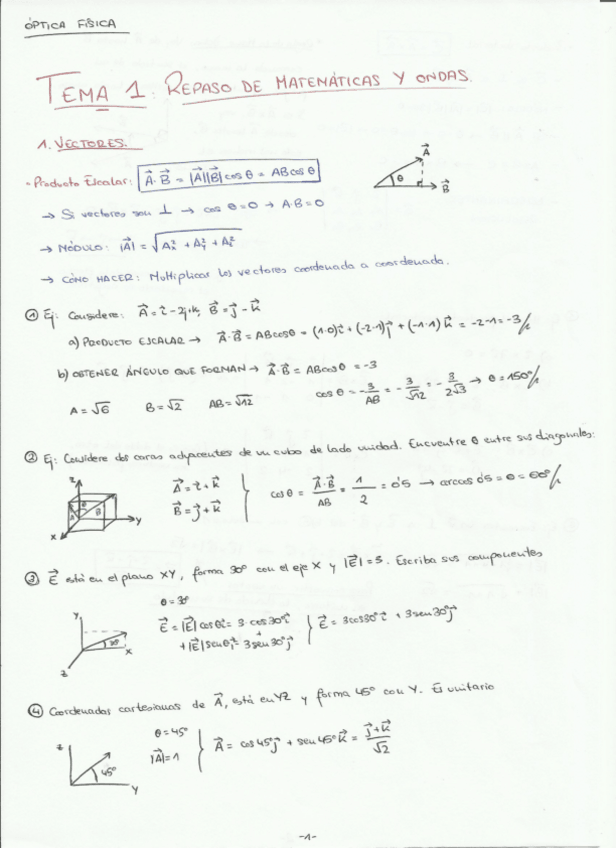 ÓPTICA FÍSICA
TEMA 1: REPASO DE MATEMÁTICAS Y ONDAS.
1. VECTORES.
- Producto Escalar: A⃗·B⃗ = |A⃗||B⃗|cos θ = ABcos θ
A⃗
θ
B⃗
→ Si vectores son ⊥ → cos θ = 0 → A·B = 0
→ MÓDULO: |A⃗| = √(Ax² + Ay² + Az²)
→ CÓMO HACER: Multiplicar los vectores coordenada a coordenada.
① Ej: Considere: A⃗ = i⃗ - 2j + k, B⃗ = j⃗ - k⃗
a) PRODUCTO ESCALAR → A⃗·B⃗ = ABcosθ = (1·0)i⃗ + (-2·1)j⃗ + (-1·1)k⃗ = -2-1 = -3//
b) OBTENER ÁNGULO QUE FORMAN → A⃗·B⃗ = ABcosθ = -3
A = √6 B = √2 AB = √12 cos θ = -3/AB = -3/√12 = -3/2√3 → θ = 150°//
② Ej: Considere dos caras adyacentes de un cubo de lado unidad. Encuentre θ entre sus diagonales:
z
θ
A
B
y
x
A⃗ = i⃗ + k⃗
B⃗ = j⃗ + k⃗
cos θ = A⃗·B⃗/AB = 1/2 = 0'5 → arccos 0'5 = θ = 60°//
③ E⃗ está en el plano XY, forma 30° con el eje X y |E⃗| = 3. Escriba sus componentes
θ = 30°
Y
30°
X
Z
E⃗ = |E⃗|cosθi⃗ = 3·cos30°i⃗
+ |E⃗|senθj⃗ = 3sen30°j⃗
E⃗ = 3cos30°i⃗ + 3sen30°j⃗
④ Coordenadas cartesianas de A⃗, está en YZ y forma 45° con Y. Es unitario
Z
45°
Y
θ = 45°
|A⃗| = 1
A⃗ = cos45°j⃗ + sen45°k⃗ = (j⃗ + k⃗)/√2
-1-